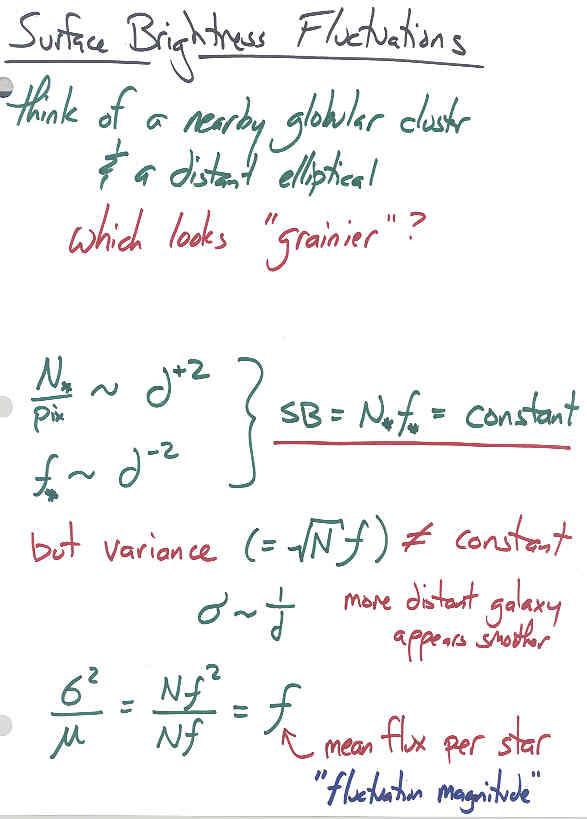 Surface Brightness Fluctuations
think of a nearby globular clustr
& a distant elliptical
which looks "grainier"?
N* / pix ~ d^+2
f* ~ d^-2
} SB = N* f* = constant
but variance (= √N f) ≠ constant
σ ~ 1/d
more distant galaxy
appears smoother
σ² / μ = Nf² / Nf = f
mean flux per star
"fluctuation magnitude"